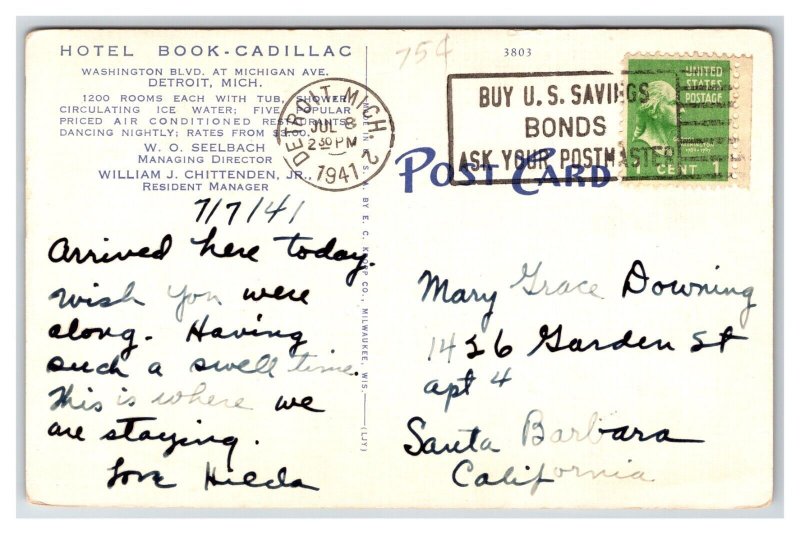 HOTEL BOOK-CADILLAC
WASHINGTON BLVD. AT MICHIGAN AVE.
DETROIT, MICH.
1200 ROOMS EACH WITH TUB, SHOWER,
CIRCULATING ICE WATER; FIVE POPULAR
PRICED AIR CONDITIONED RESTAURANTS
DANCING NIGHTLY; RATES FROM $3.00.
W. O. SEELBACH
MANAGING DIRECTOR
WILLIAM J. CHITTENDEN, JR.,
RESIDENT MANAGER
7/7/41
Arrived here today.
Wish you were
along. Having
such a swell time.
This is where we
are staying.
Love Hilda
MADE IN U.S.A. BY E. C. KROPP CO., MILWAUKEE, WIS.
(LJY)
75¢
3803
DETROIT, MICH. 2
JUL 8
2 30 PM
1941
BUY U. S. SAVINGS
BONDS
ASK YOUR POSTMASTER
UNITED
STATES
POSTAGE
1 CENT 1
POST CARD
Mary Grace Downing
1426 Garden St
apt 4
Santa Barbara
California